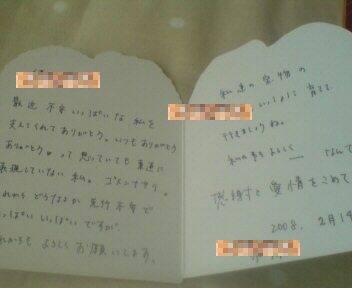 最近 不安 いっぱいな 私を
支えてくれて ありがとう。いつも ありがとう
ありがとう って 思っていても 素直に
表現していない 私。ゴメンナサイ。
これから どうなるか 先行 不安で
いっぱい いっぱい ですが
これからも よろしく お願いします。
私達の 宝物の
いっしょに 育てて
行きましょうね。
私の事も よろしく なんて
感謝と 愛情を こめて
2008. 2月14